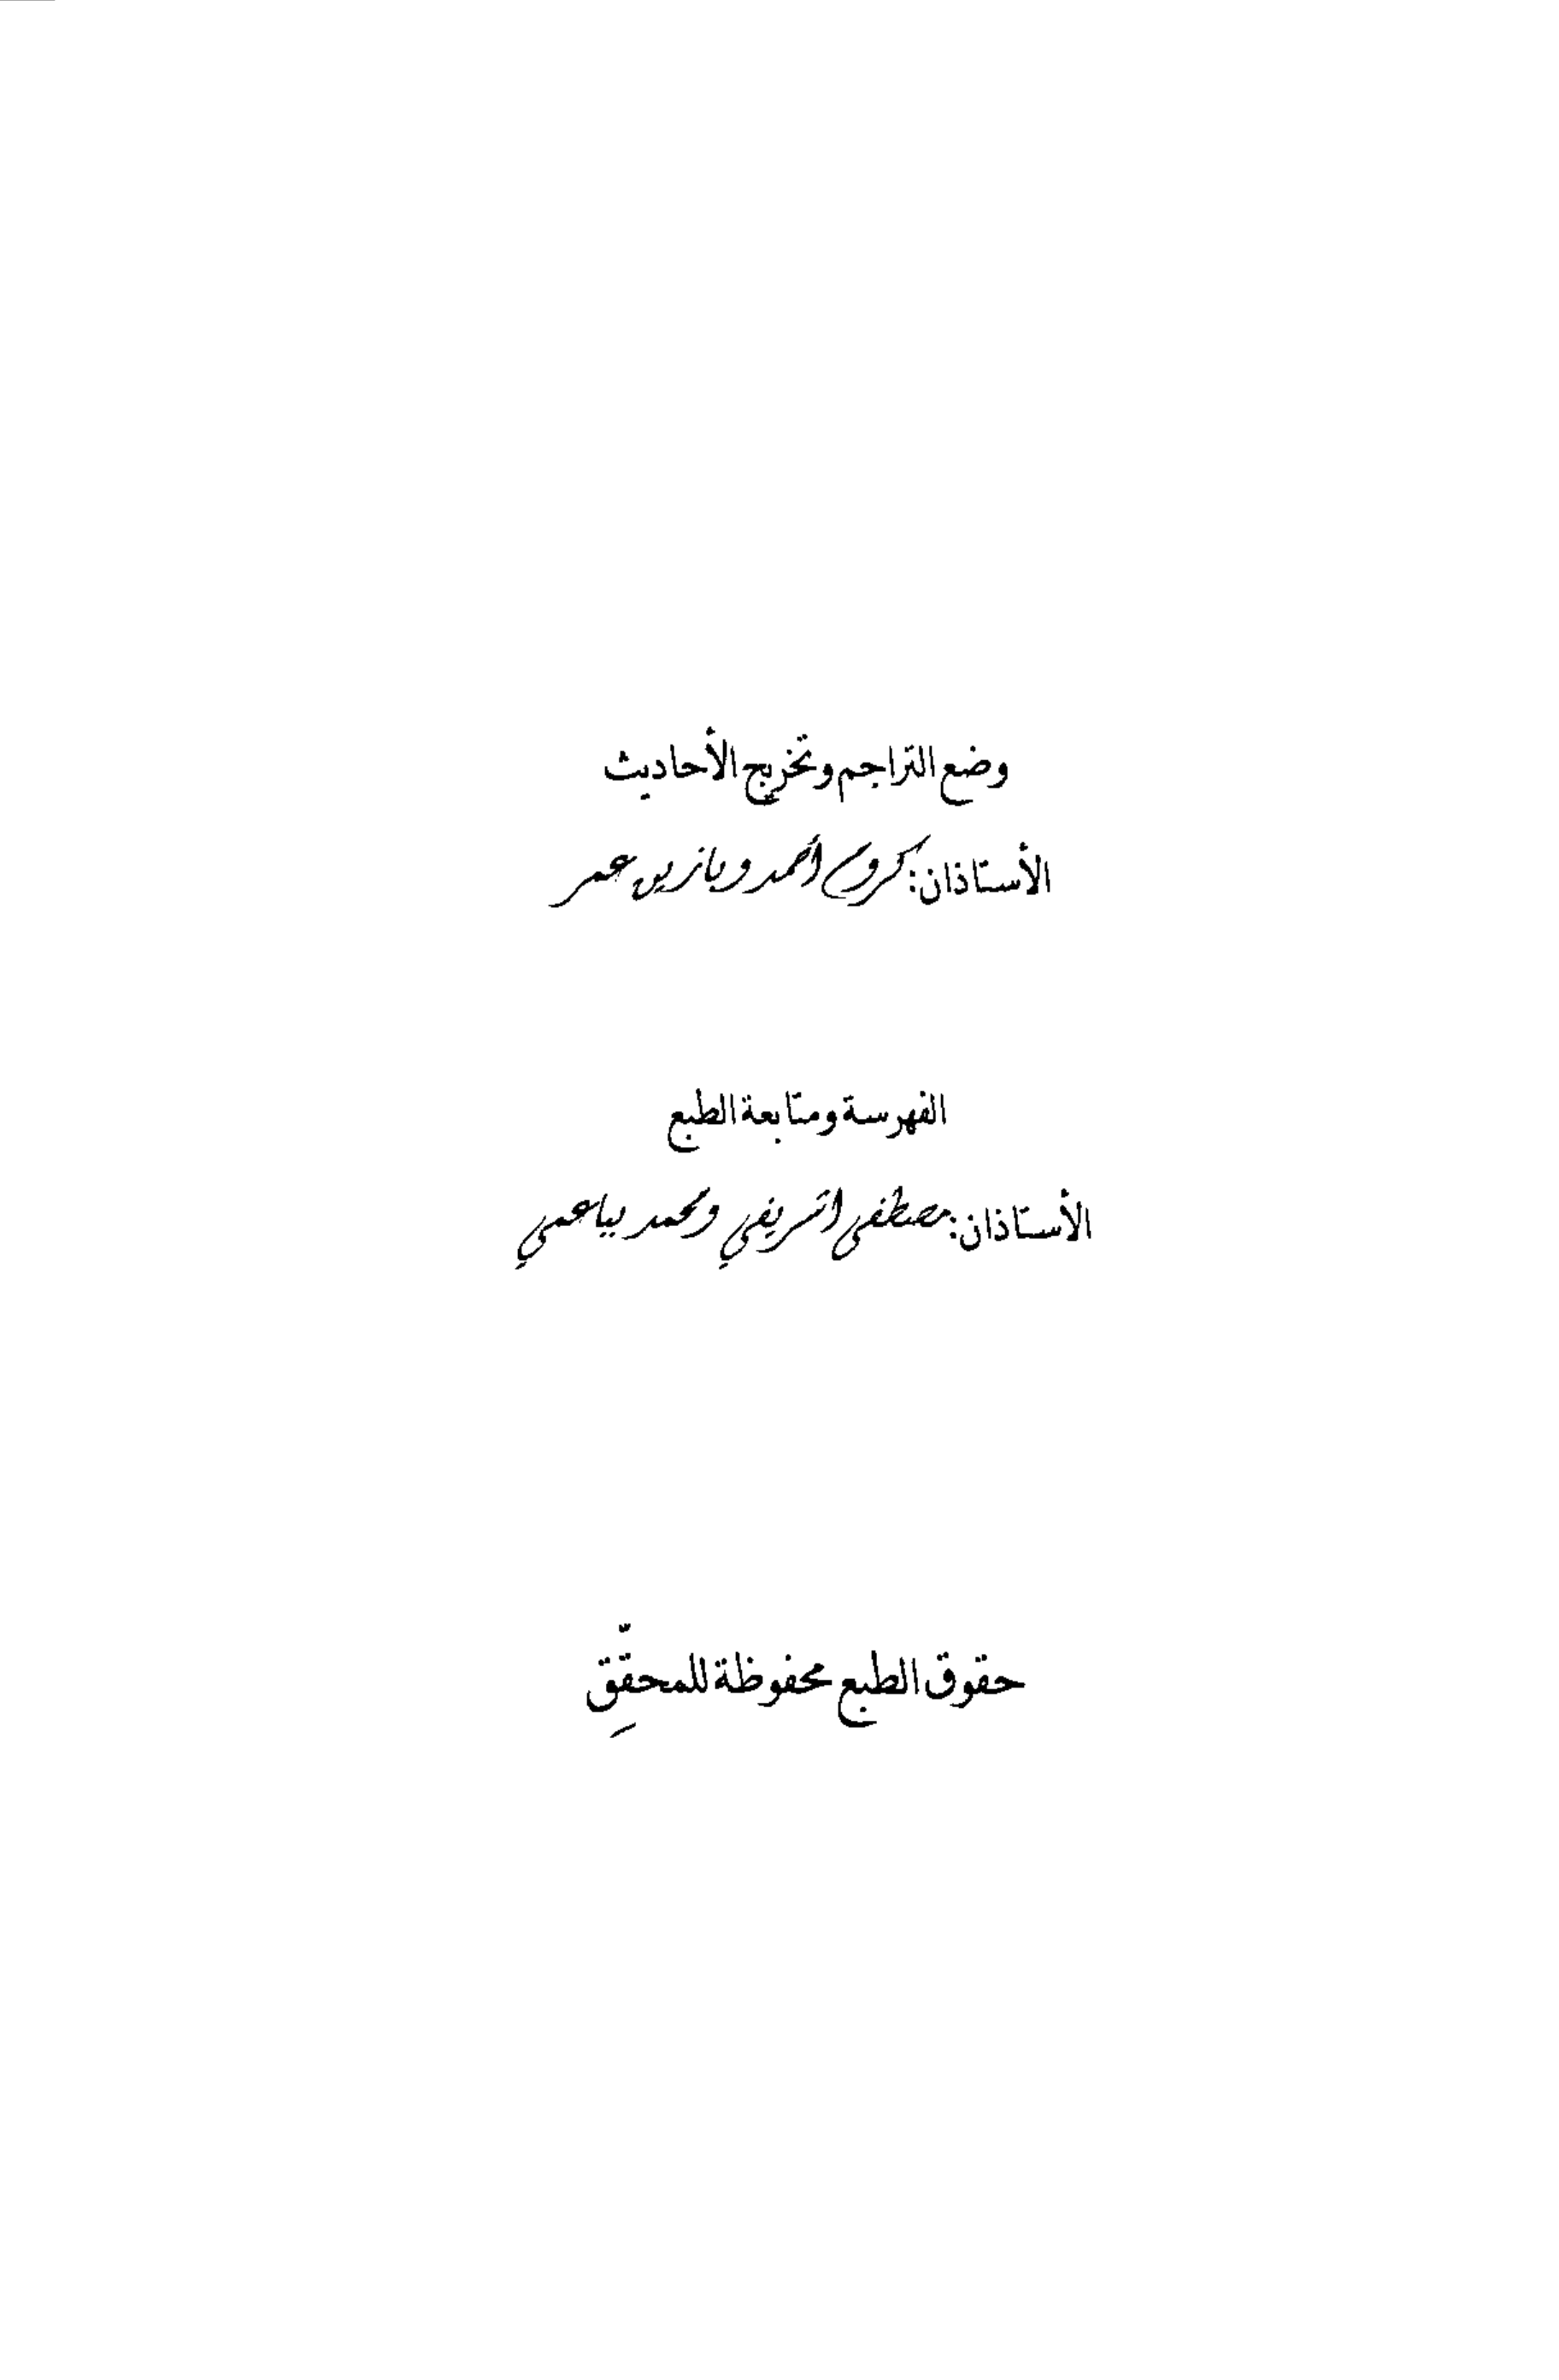 وضع التراجم وتخريج الأحاديث
الأستاذان: كروم أحمد وبازين عمر
الفهرسة ومتابعة الطبع
الأستاذان: مصطفى اشريفي ومحمد بباعمي
حقوق الطبع محفوظة للمحقّق